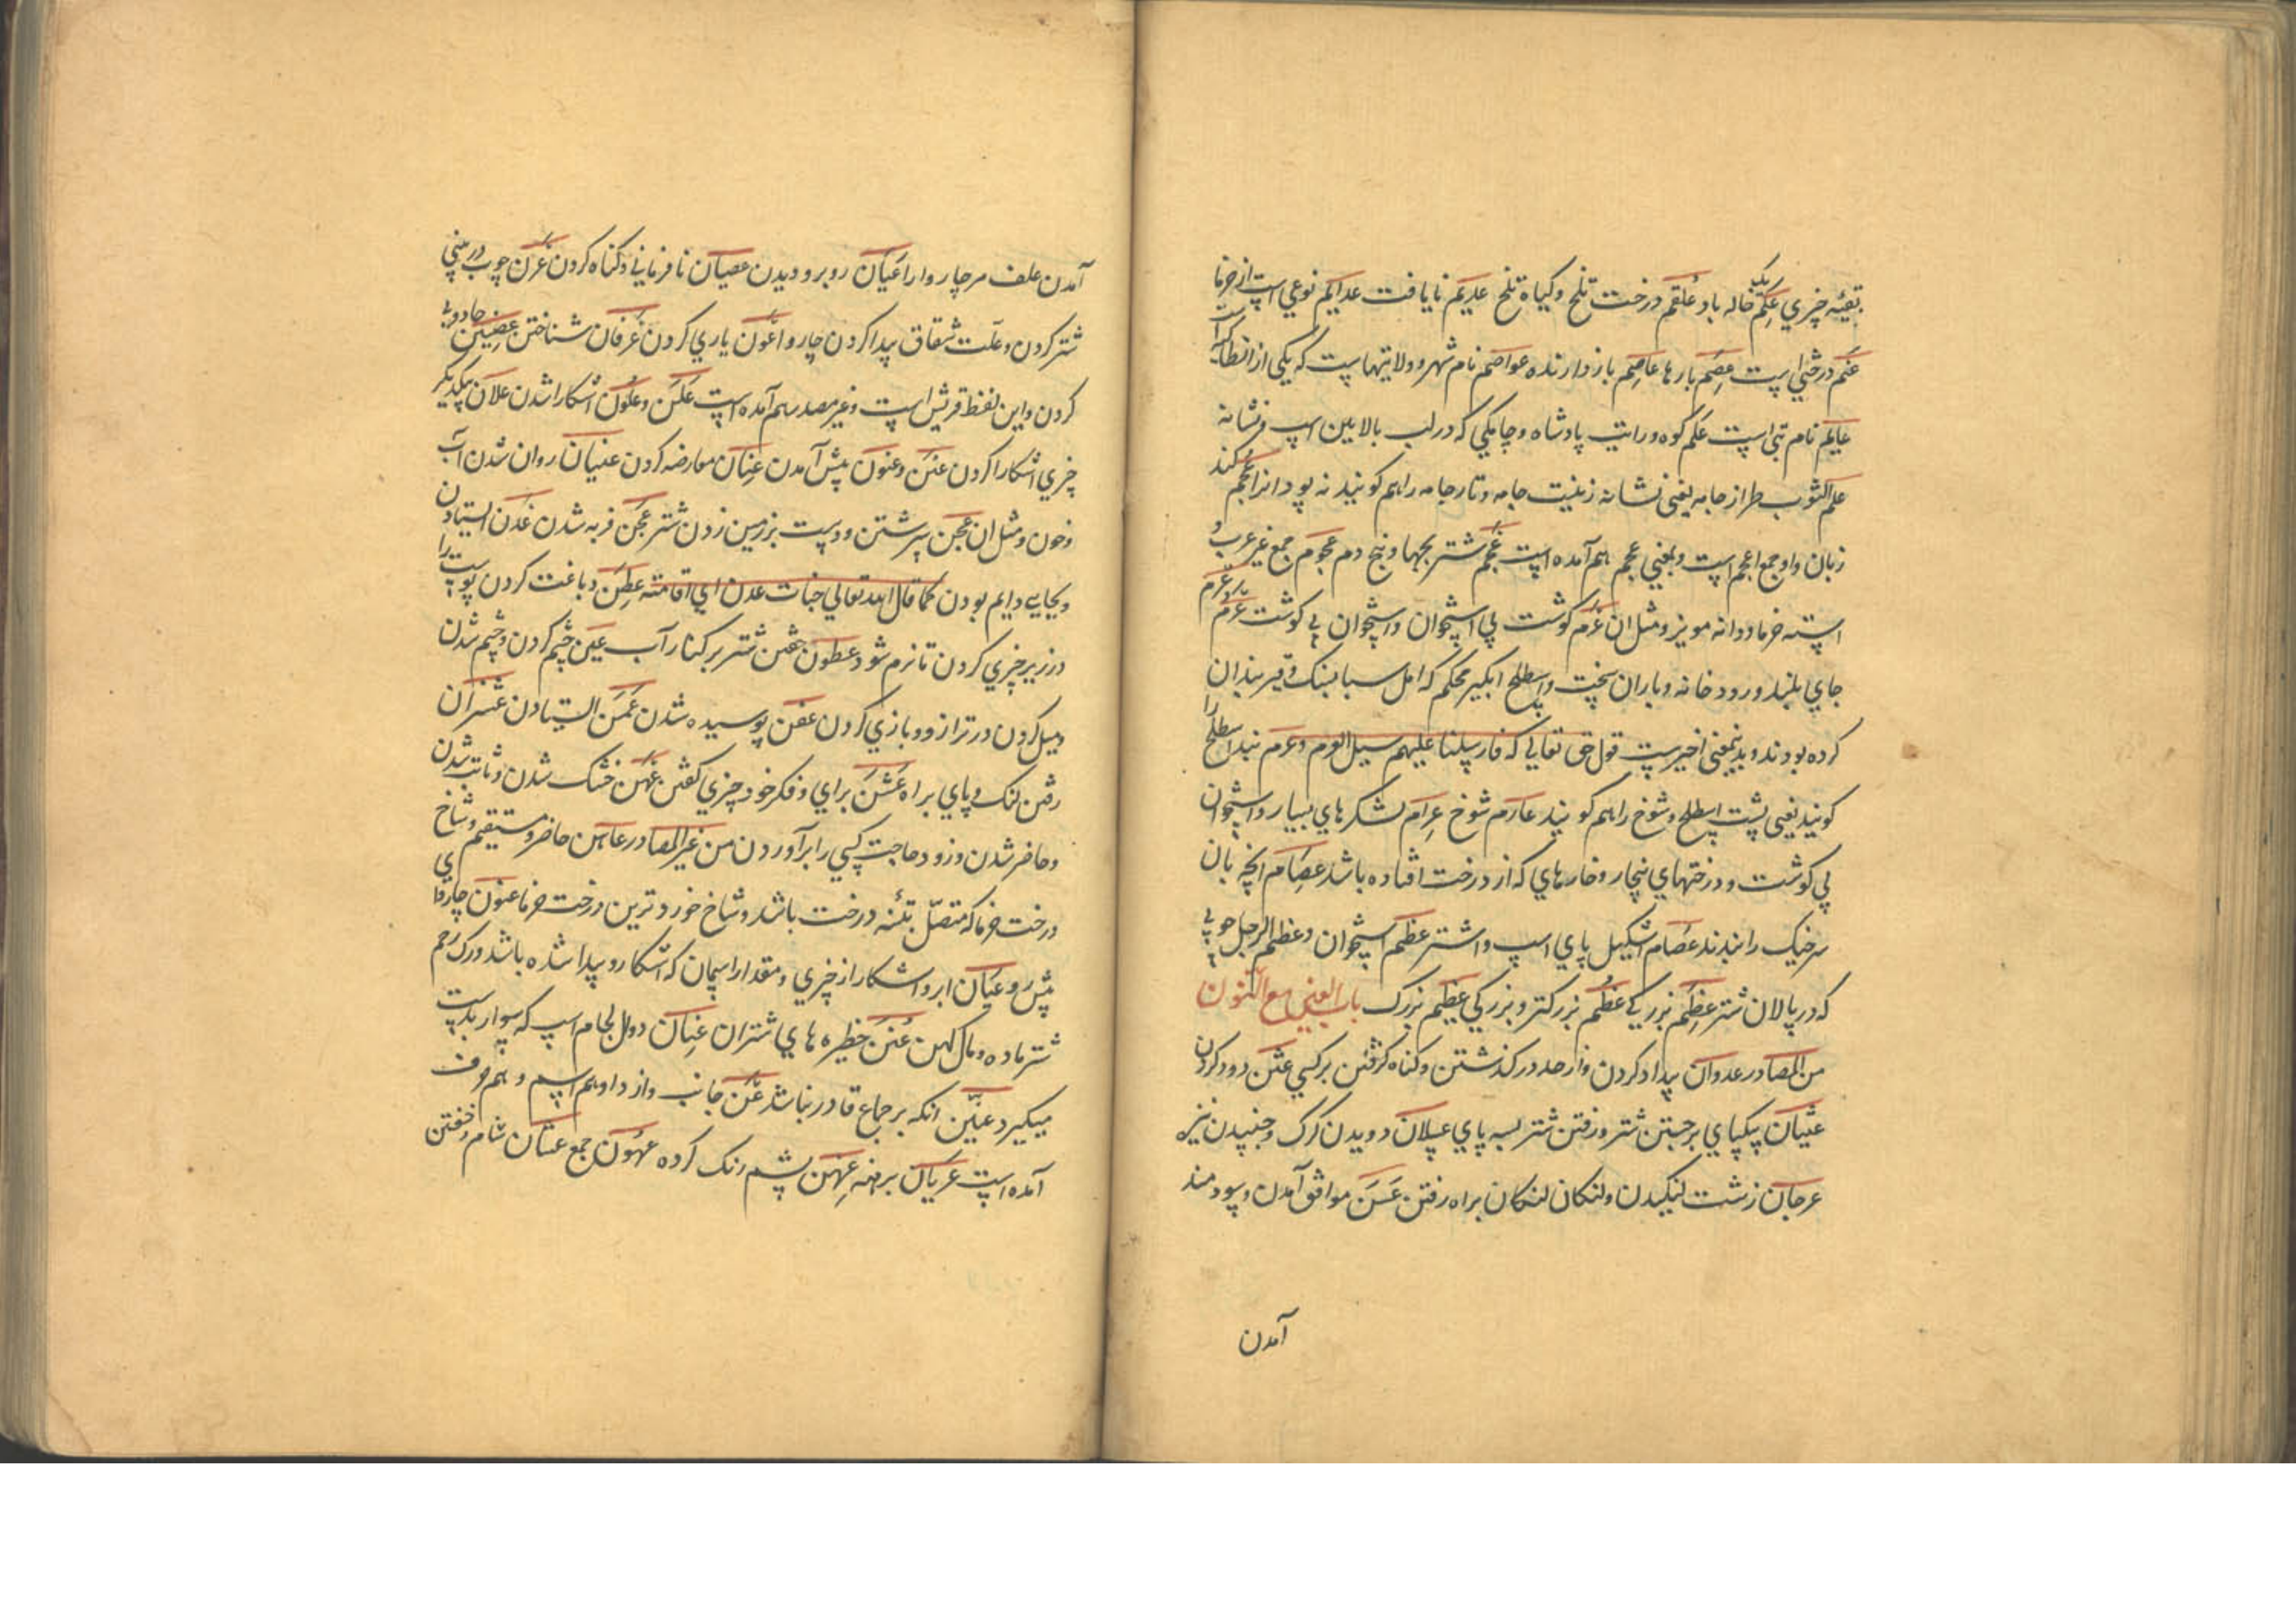 بقیّه چیزي عِکم خاله باد عَلقم درخت تلخ وکیاه تلخ عدیم نایافت عدایم نوعي است از خرما
عنم درختي است عِصَم بارها عاصِم بازدارنده عواصم نام شهر وولایتهاست که یکي از انطاکیه است
عایم نام بتي است علم کوه ورایت پادشاه وچاکي که در لب بالایین اسپ ونشانه
علم الثوب طراز جامه یعني نشانه زینیت جامه وتار جامه را هم کویند نه پود انرا عجم کند
زبان واو جمع اعجم است وبمعني عجم هم آمده است عَجم شتر بچها وبیخ دم عجوم جمع غیر عرب و
استه خرما ودانه مویز ومثل ان عَرم کوشت پي استخوان واستخوان بي کوشت عَرِم وعَرم
جاي بلند ورودخانه وباران سخت واسطلخ ابکیر محکم که اهل سبا بسنک وقیر بندان
کرده بودند وبدینمعني اخیرست قول حق تعالي که فارسلنا علیهم سیل العرم وعرم بند اسطلخ را
کویند یعني پشت اسطلخ وشوخ را هم کویند عارم شوخ عرام لشکرهاي بسیار واستخوان
بي کوشت ودرختهاي نیجار وخارهاي که از درخت افتاده باشد عصام انچه بان
سرخیک را بندند عصام اشکیل پاي اسپ واشتر عظم استخوان وعظم الرحل چوبي
که در پالان شتر عِظَم بزرکي عُظم بزرکتر وبزرکي عظیم بزرک باب العین مع النون
من المصادر عدوان بیداد کردن واز حد درکذشتن وکناه کرفتن بر کسي عثن دود کردن
عثیان بیکپاي برجستن شتر ورفتن شتر بسه پاي عسلان دویدن کرک وجنبیدن نیزه
عرجان زشت لنکیدن ولنکان لنکان براه رفتن عَسَن موافق آمدن وسودمند
آمدن
آمدن علف مر چاروا را عیان روبرو دیدن عصیان نافرماني وکناه کردن عَرن چوب در بیني
شتر کردن وعلّت شقاق پیدا کردن چاروا عَون یاري کردن عرفان شناختن عِضین جادویي
کردن واین لفظ قریش است وغیر مصدر هم آمده است عَلَن وعلُون اشکارا شدن علان بیکدیکر
چیزي اشکارا کردن عنن وعنون پیش آمدن عِنان معارضه کردن عینان روان شدن آب
وخون ومثل ان عجن سرشتن ودست بزمین زدن شتر عجَن فربه شدن عدن ایستادن
وبجایي دایم بودن کما قال الله تعالي جنات عدن اي اقامته عطن دباغت کردن پوست را
در زیر چیزي کردن تا نرم شود عطون خفتن شتر بر کنار آب عین چشم کردن وچشم شدن
ومیل کردن در ترازو وبازي کردن عفن پوسیده شدن عَمَن ایستادن عشزان
رفتن لنک وپاي براه عَشَن براي وفکر خود چیزي کفتن عَهن خشک شدن وثابت شدن
وحاضر شدن وزود حاجت کسي را برآوردن من غیر المصادر عاهن حاضر ومستقیم وشاخ
درخت خرما که متصّل بتنه درخت باشد وشاخ خوردترین درخت خرما عنون چاروا
پیش رو عَیان ابر واشکار از چیزي ومقدار اسمان که اشکار وپیدا شده باشد ورک رحم
شتر ماده ومال کهن عُنن حظیره هاي شتران عِنان دوال لجام اسپ که سوار بدست
میکیرد عنّین انکه بر جماع قادر نباشد عَن جانب واز واو هم اسم وهم حرف
آمده است عریان برهنه عِهن پشم رنک کرده عهُون جمع عشان شام وخفتن